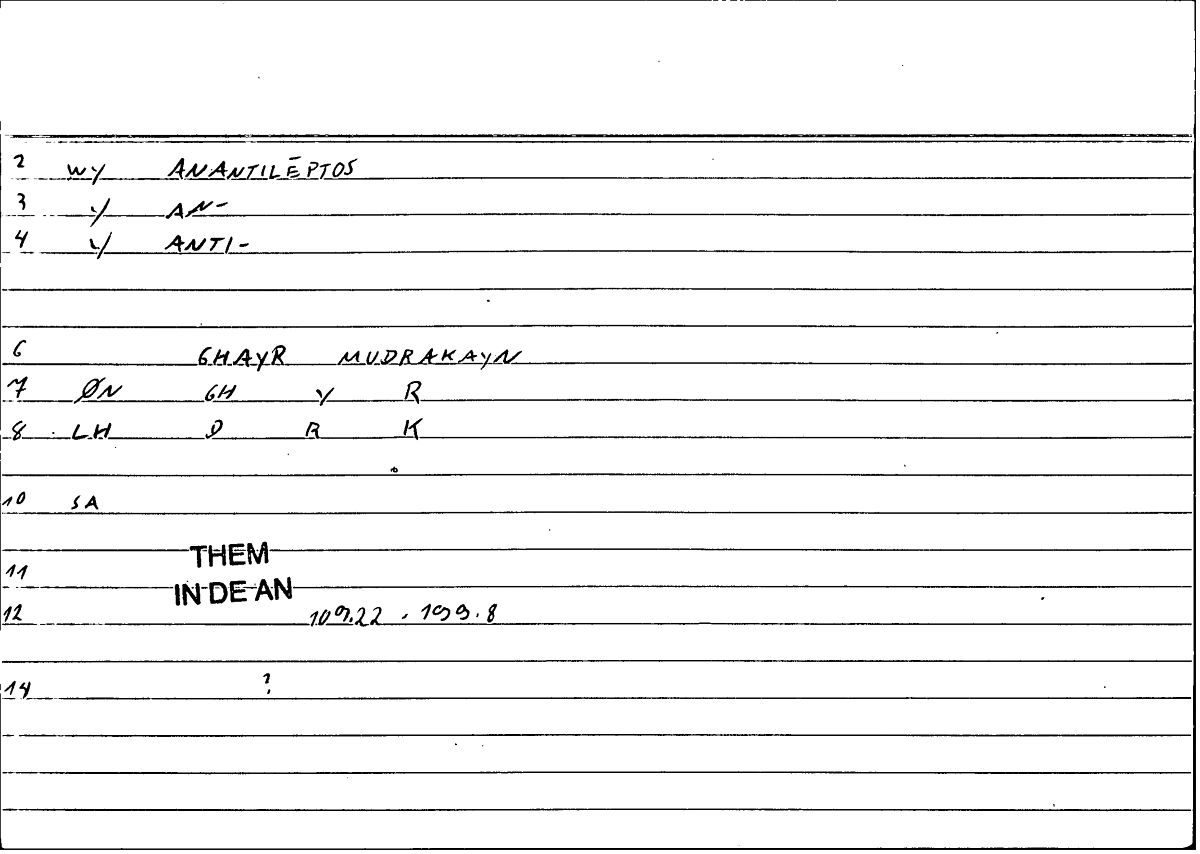 2 WY ANANTILĒPTOS
3 Y AN-
4 Y ANTI-
6 GHAYR MUDRAKAYN
7 ØN GH Y R
8 LH D R K
10 SA
THEM
11
IN DE AN
12 109.22 . 199.8
14 ?